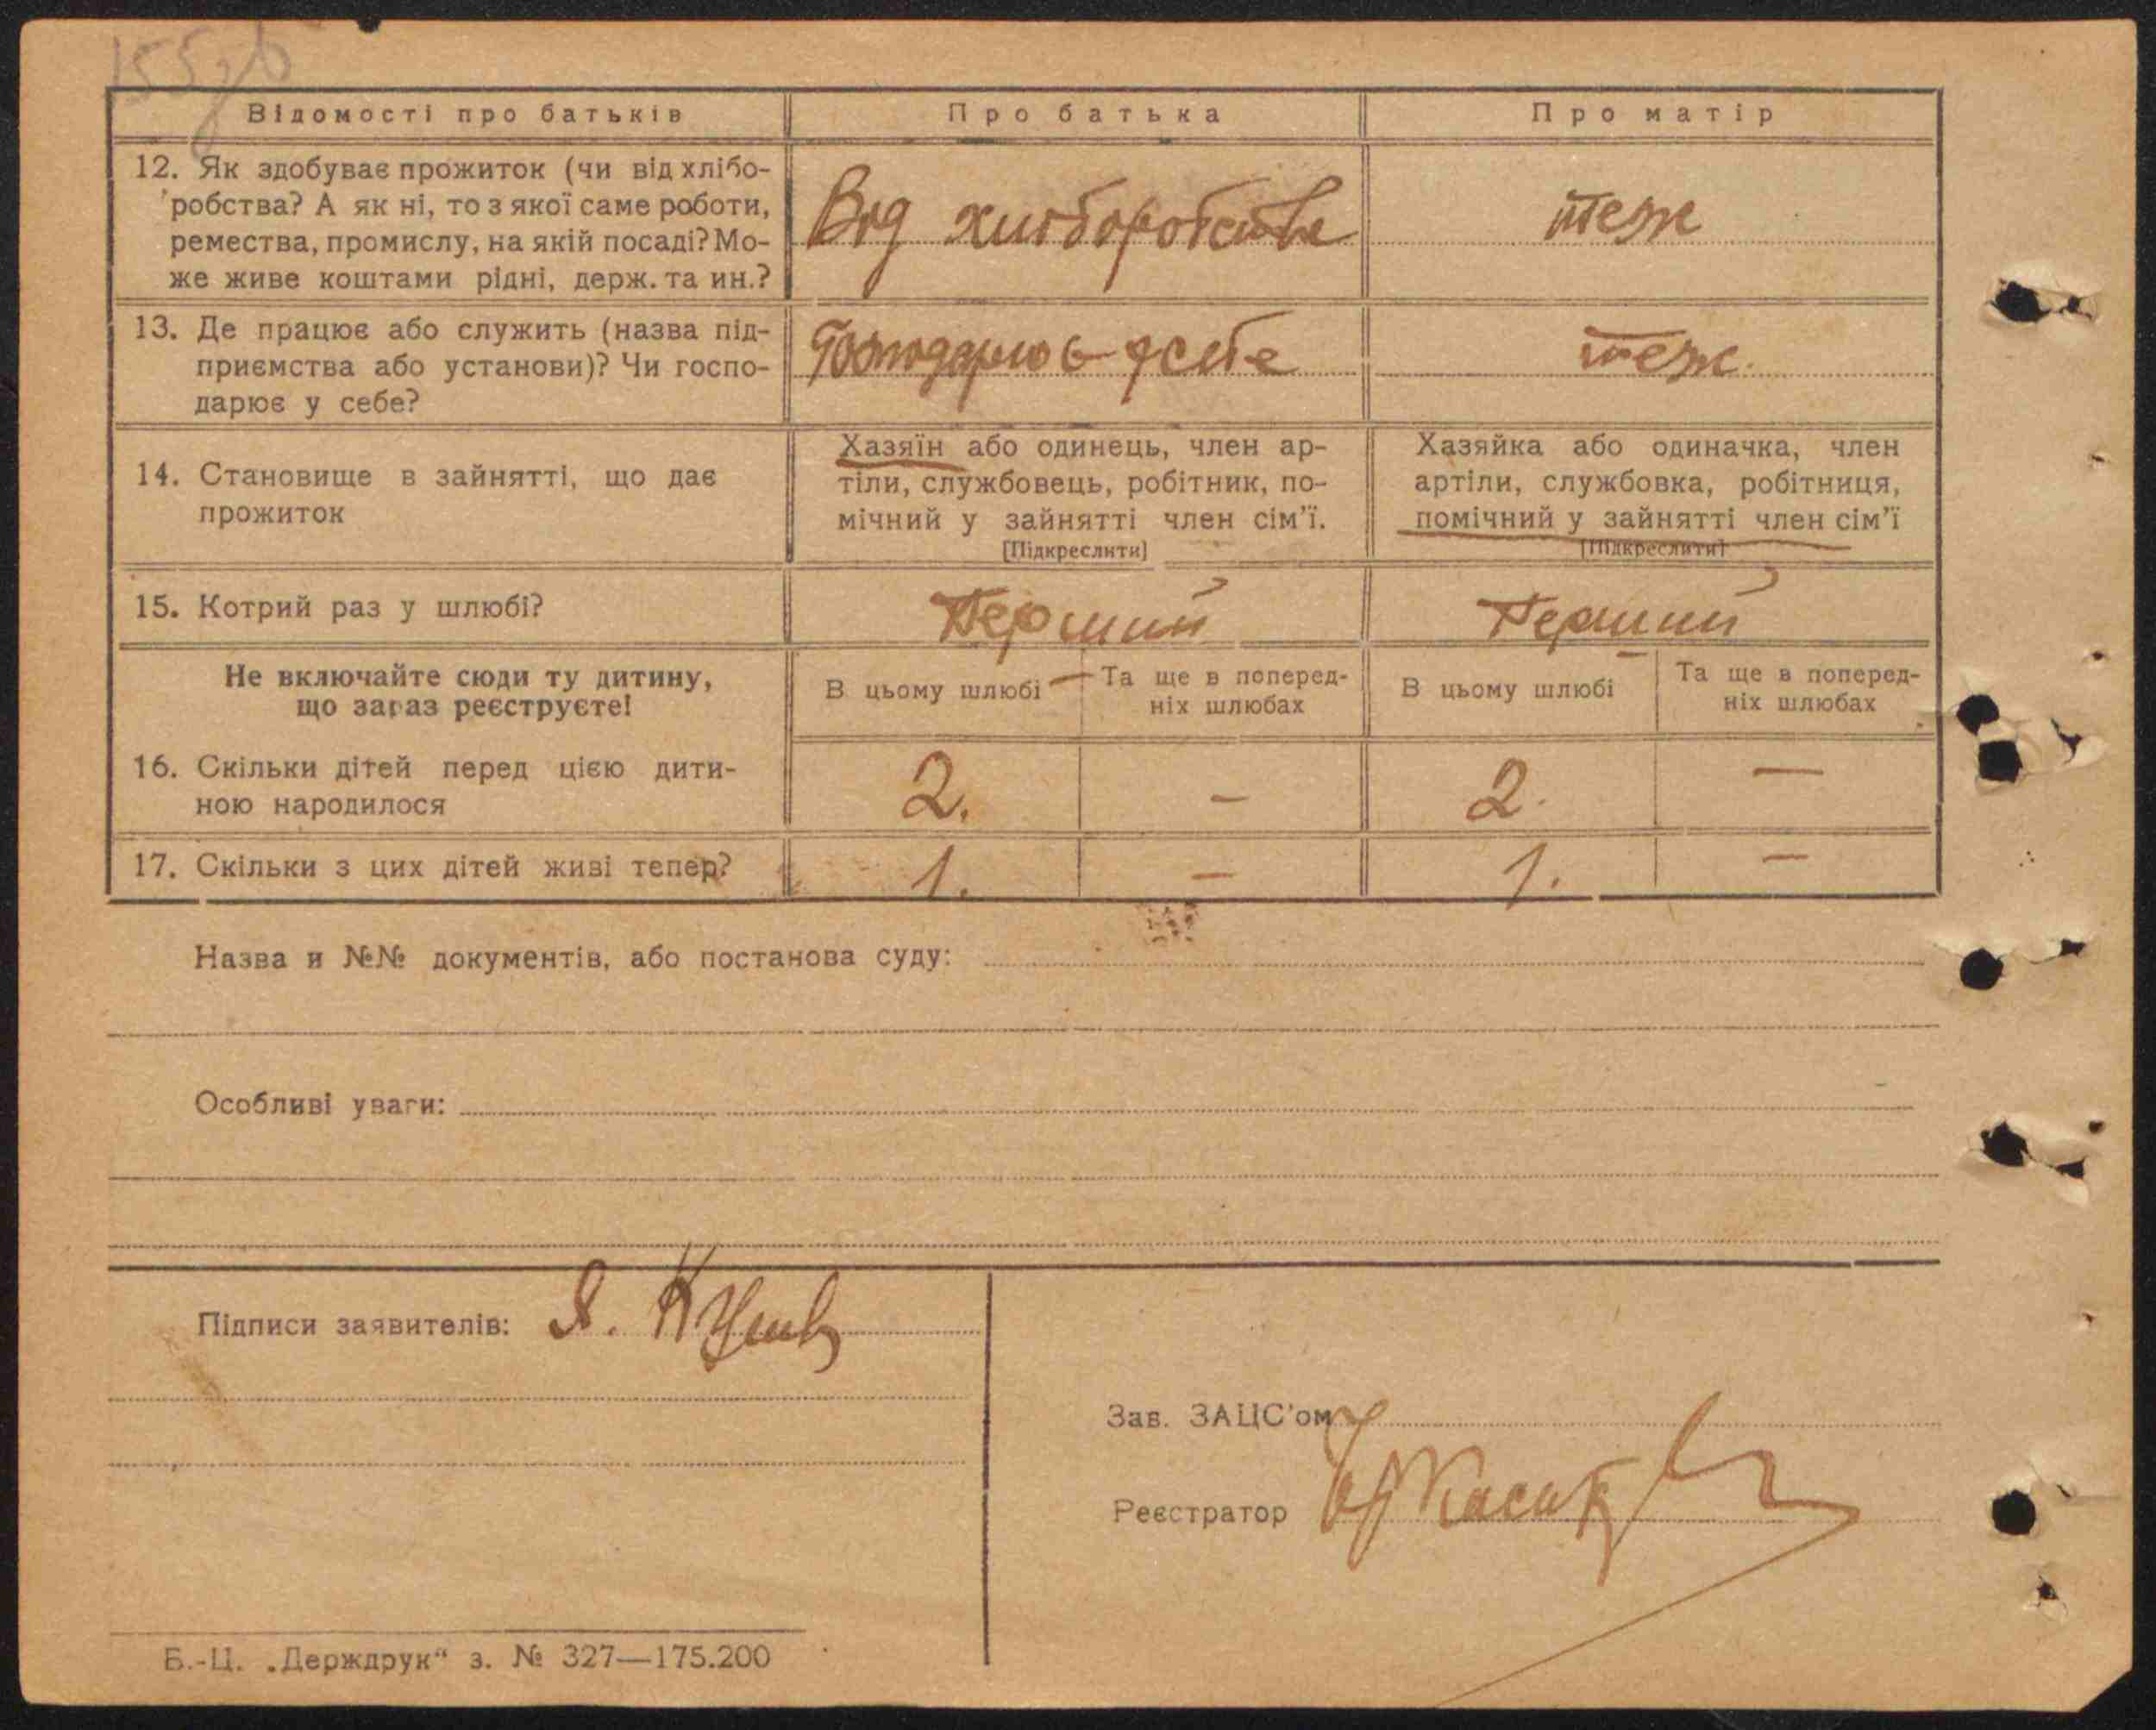 155зв
Відомості про батьків
Про батька
Про матір
12. Як здобуває прожиток (чи від хлібо-
робства? А як ні, то з якої саме роботи,
ремества, промислу, на якій посаді? Мо-
же живе коштами рідні, держ. та ин.?
Від хліборобства
теж
13. Де працює або служить (назва під-
приємства або установи)? Чи госпо-
дарює у себе?
Господарює у себе
теж.
14. Становище в зайнятті, що дає
прожиток
Хазяїн або одинець, член ар-
тіли, службовець, робітник, по-
мічний у зайнятті член сім'ї.
[Підкреслити]
Хазяйка або одиначка, член
артіли, службовка, робітниця,
помічний у зайнятті член сім'ї
[Підкреслити]
15. Котрий раз у шлюбі?
Перший
Перший
Не включайте сюди ту дитину,
що зараз реєструєте!
В цьому шлюбі
Та ще в поперед-
ніх шлюбах
В цьому шлюбі
Та ще в поперед-
ніх шлюбах
16. Скільки дітей перед цією дити-
ною народилося
2. — 2. —
17. Скільки з цих дітей живі тепер?
1. — 1. —
Назва и №№ документів, або постанова суду:
Особливі уваги:
Підписи заявителів: Я.
Зав. ЗАЦС'ом
Реєстратор
Б.-Ц. „Держдрук“ з. № 327—175.200